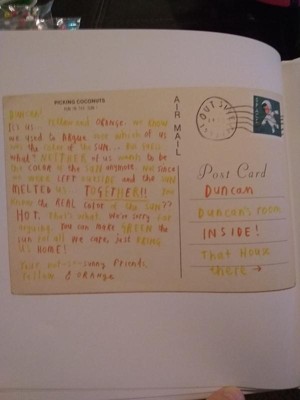 PICKING COCONUTS
AIR MAIL
DUNCAN!
It's us Yellow and Orange. We know
we used to Argue over which of us
was the color of the sun... But guess
what? NEITHER of us wants to be
the COLOR of the SUN anymore. Not since
we were LEFT OUTSIDE and the SUN
MELTED US... TOGETHER!! You
know the REAL color of the SUN??
HOT. That's what. We're sorry for
arguing. You can make GREEN the
sun for all we care, just BRING
us HOME!
Your not-so-sunny friends,
Yellow & Orange
Post Card
Duncan
Duncan's room
INSIDE!
That House
there →